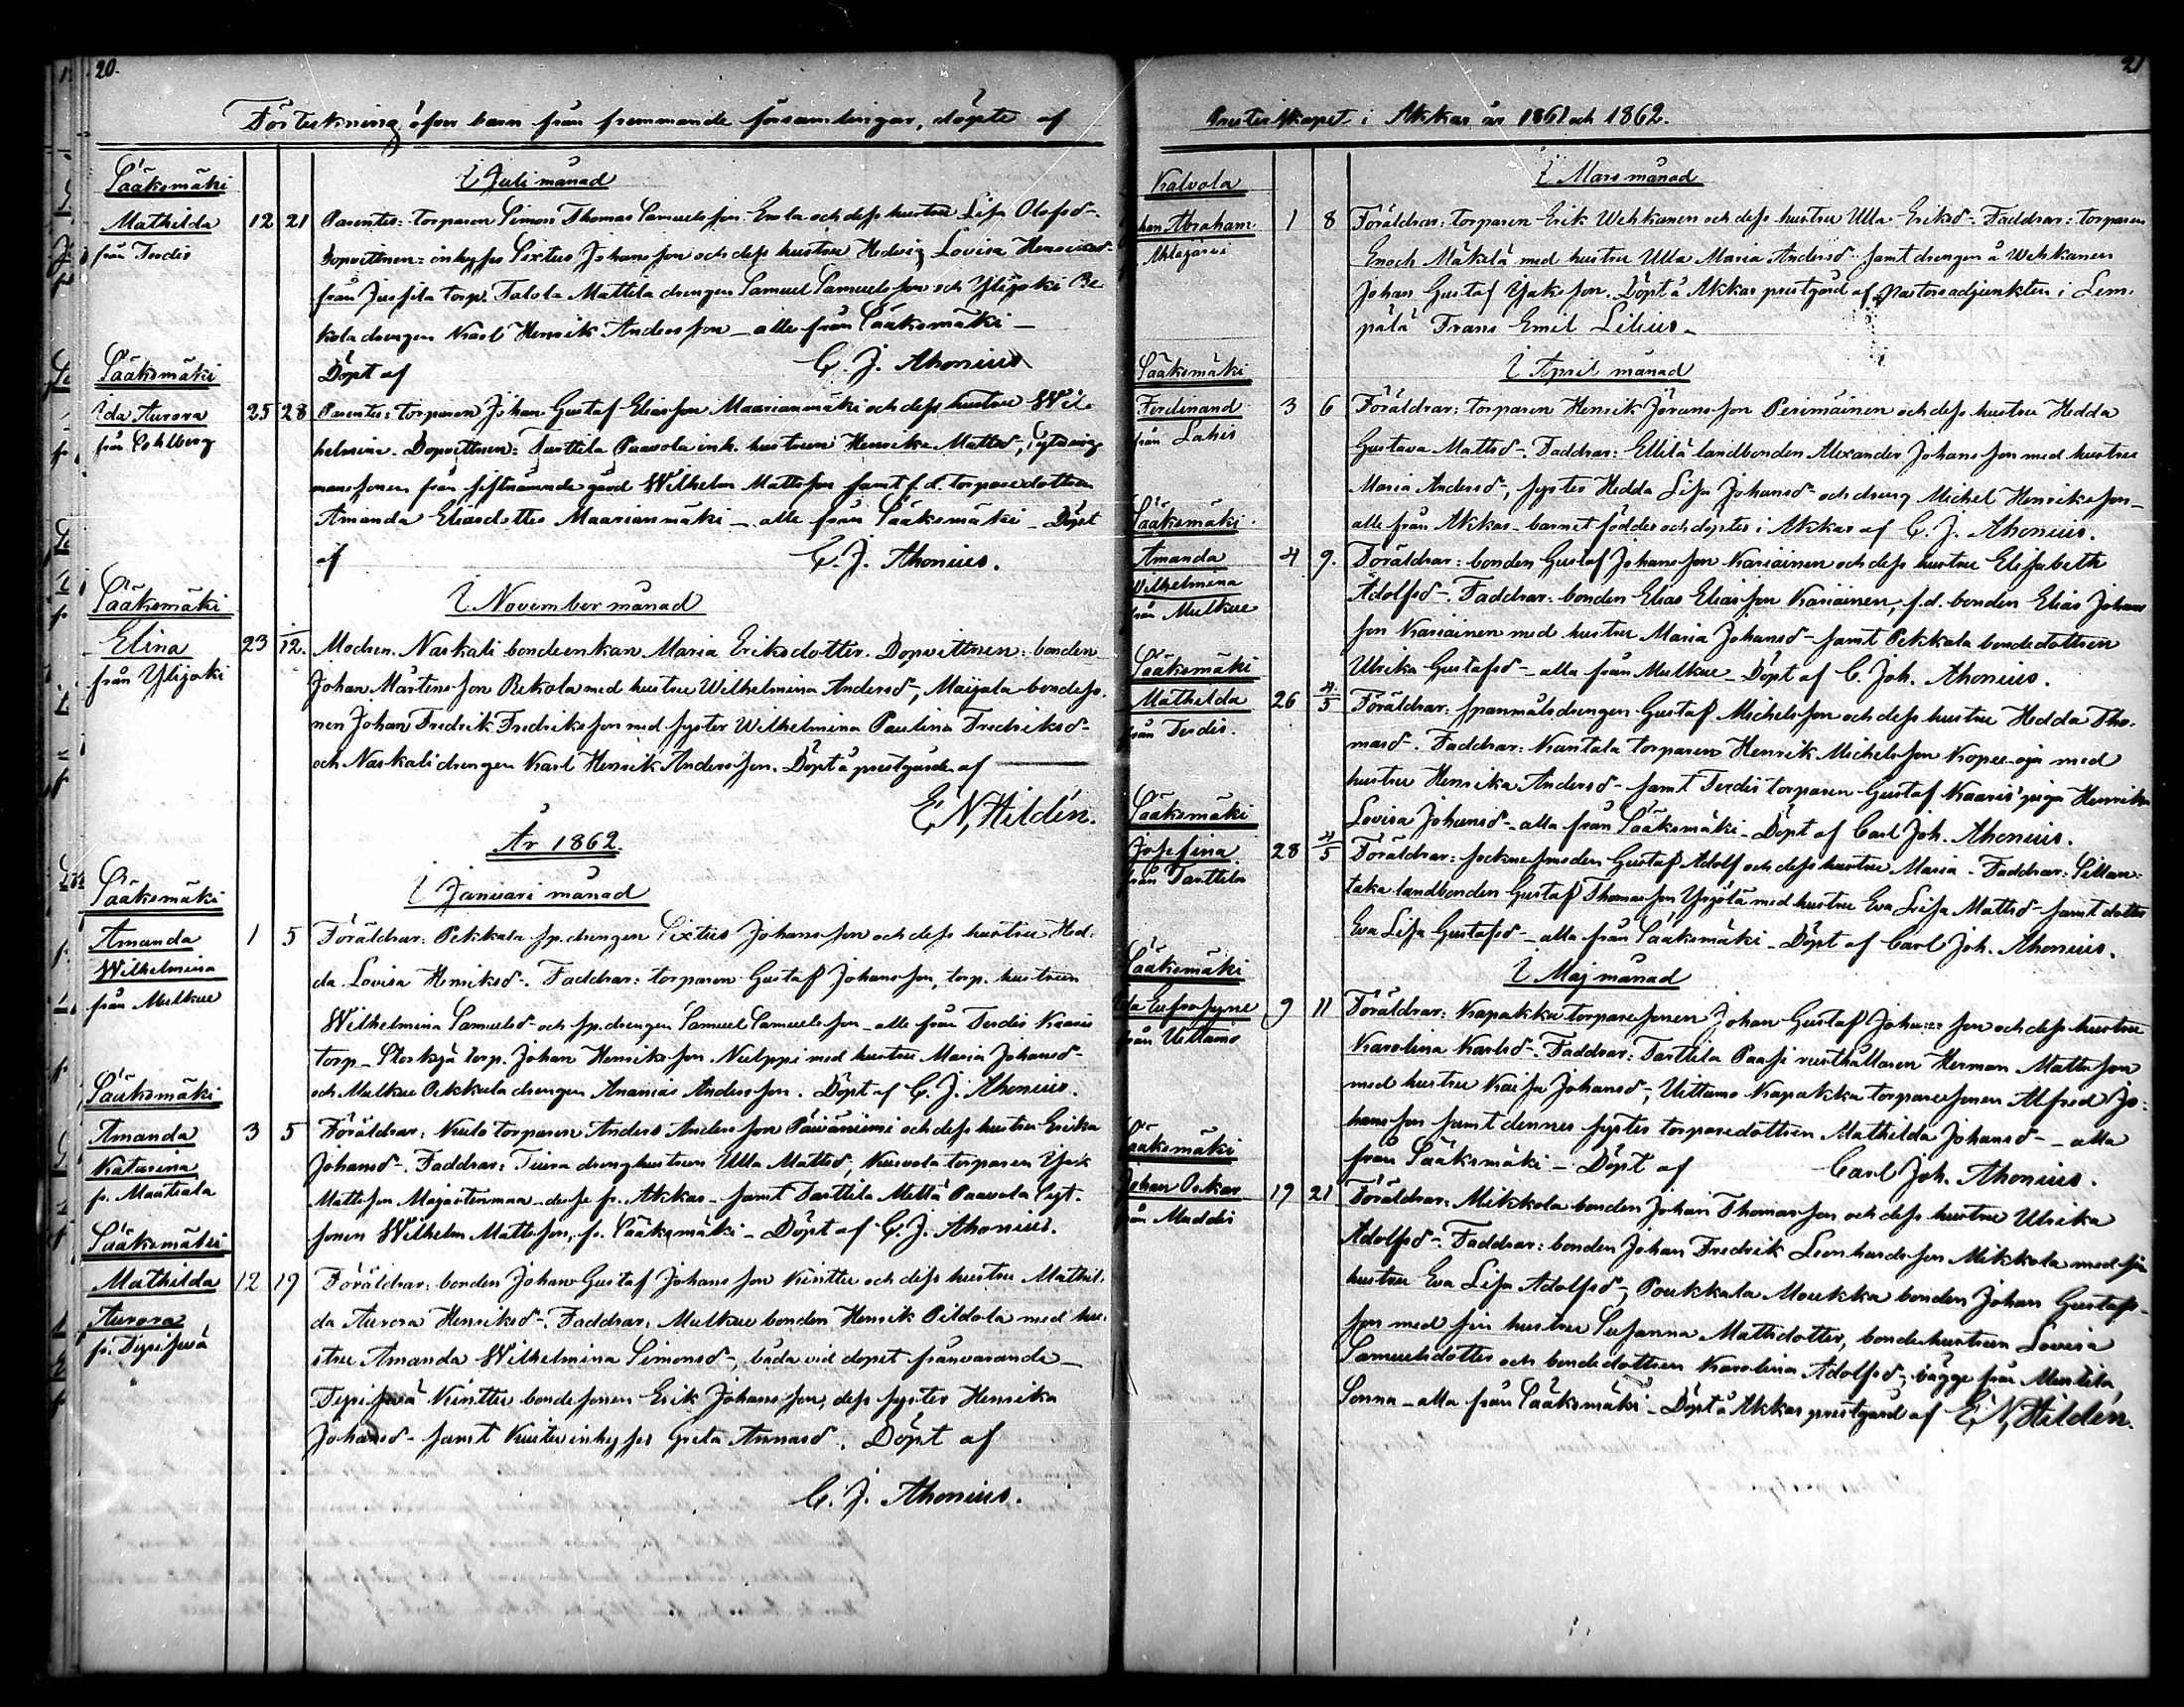 20.
Förteckning öfver barn från främmande församlingar, döpte af
I Juli månad
Sääksmäki
Mathilda 12 21 Parentes: torparen Simon Thomas Samuelsson Erola och dess hustru Lisa Olofsd-.
från Terdis Dopvittnen: inhyses Sixtus Johansson och dess hustru Hedvig Lovisa Henriksd-
från Jussila torp. Talola Mattila drengen Samuel Samuelsson och Ylijoki Re-
kola drengen Karl Henrik Andersson - alle från Sääksmäki -
Döpt af C. J. Ahonius
Sääksmäki
Ida Aurora 25 28 Parentes: torparen Johan Gustaf Eliasson Maarianmäki och dess hustru Wil-
från Kohlberg helmina. Dopvittnen: Tarttila Paavola inh. hustrun Henrika Mattsd-, sytning-
mans sonen från sistnämnde gård Wilhelm Mattsson samt f.d. torparedottren
Amanda Eliasdotter Maarianmäki - alle från Sääksmäki - Döpt
af C. J. Ahonius.
I November månad
Sääksmäki
Elina 23 1/12. Modren. Naskali bondeenkan Maria Eriksdotter. Dopvittnen: bonden
från Ylijoki Johan Mårtensson Rekola med hustru Wilhelmina Andersd-, Maijala bondeso-
nen Johan Fredrik Fredriksson med syster Wilhelmina Paulina Fredriksd-
och Naskali drengen Karl Henrik Andersson. Döpt å prestgården af
E. N. Hildén.
År 1862.
I Januari månad
Sääksmäki
Amanda 1 5 Föräldrar: Pekkala sp.drengen Sixtus Johansson och dess hustru Hed-
Wilhelmina da Lovisa Henriksd-. Faddrar: torparen Gustaf Johansson, torp. hustrun
från Mulkue Wilhelmina Samuelsd- och sp.drengen Samuel Samuelsson - alle från Terdis Kaaris
torp - Storkyä torp. Johan Henriksson Nulppi med hustru Maria Johansd-
och Mulkue Pekkala drengen Ananias Andersson. Döpt af C. J. Ahonius.
Sääksmäki
Amanda 3 5 Föräldrar: Kulo torparen Anders Andersson Päiväniemi och dess hustru Erika
Katarina Johansd-. Faddrar: Tiura drenghustrun Ulla Mattsd, Kurvola torparen Isak
fr. Maatiala Mattsson Majastenmaa - desse fr. Akkas - samt Tarttila Mella Paavola Syt.
sonen Wilhelm Mattsson, fr. Sääksmäki - Döpt af C. J. Ahonius.
Sääksmäki
Mathilda 12 19 Föräldrar: bonden Johan Gustaf Johansson Kinttu och dess hustru Mathil-
Aurora da Aurora Henriksd-. Faddrar: Mulkue bonden Henrik Pildola med hu-
stru Amanda Wilhelmina Simonsd-, båda vid dopet frånvarande -
Kinttu bondesonen Erik Johansson, dess syster Henrika
Johansd- samt Kinttu inhyses Greta Annasd. Döpt af
C. J. Ahonius.
21
Presterskapet i Akkas år 1861 och 1862.
I Mars månad
Kalvola
han Abraham 1 8 Föräldrar: torparen Erik Wehkanen och dess hustru Ulla Eriksd-. Faddrar: torparen
Ahlajärvi Enoch Mäkelä med hustru Ulla Maria Andersd- samt drengen å Wehkanen
Johan Gustaf Isaksson. Döpt å Akkas prestgård af Pastorsadjunkten i Lem-
pälä Frans Emil Lilius.
I April månad
Sääksmäki
Ferdinand 3 6 Föräldrar: torparen Henrik Göransson Perimäinen och dess hustru Hedda
från Lahis Gustava Mattsd-. Faddrar: Ellilä landbonden Alexander Johansson med hustru
Maria Andersd-, syster Hedda Lisa Johansd- och dreng Michel Henriksson -
alle från Akkas - barnet föddes och döptes i Akkas af C. J. Ahonius.
Sääksmäki
Amanda 4 9. Föräldrar: bonden Gustaf Johansson Kariainen och dess hustru Elisabeth
Wilhelmina Adolfsd-. Faddrar: bonden Elias Eliasson Kariainen, f.d. bonden Elias Johans
från Mulkue son Kariainen med hustru Maria Johansd- samt Pekkala bondedottren
Ulrika Gustafsd- - alla från Mulkue - Döpt af C. Joh. Ahonius.
Sääksmäki
Mathilda 26 4/5 Föräldrar: spanmålsdrengen Gustaf Michelsson och dess hustru Hedda Tho-
från Terdis. masd-. Faddrar: Kantala torparen Henrik Michelsson med
hustru Henrika Andersd- samt Terdis torparen Gustaf Kaaris piga Henrika
Lovisa Johansd- - alla från Sääksmäki - Döpt af Carl Joh. Ahonius.
Sääksmäki
Josefina 28 4/5 Föräldrar: sockne smeden Gustaf Adolf och dess hustru Maria - Faddrar: Sillan-
från Tarttila taka landbonden Gustaf Thomasson Yrjölä med hustru Eva Lisa Mattsd- samt dotter
Eva Lisa Gustafsd- - alla från Sääksmäki - Döpt af Carl Joh. Ahonius.
I Maj månad
Sääksmäki
Ida Eufrosyne 9 11 Föräldrar: Kapakka torparesonen Johan Gustaf Johansson och dess hustru
från Uittamo Karolina Karlsd-. Faddrar: Tarttila Paasi rusthållaren Herman Mattsson
med hustru Kaisa Johansd-, Uittamo Kapakka torparesonen Alfred Jo-
hansson samt dennes syster torparedottren Mathilda Johansd- - alla
från Sääksmäki - Döpt af Carl Joh. Ahonius.
Sääksmäki
Johan Oskar 19 21 Föräldrar: Mikkola bonden Johan Thomasson och dess hustru Ulrika
från Muddis Adolfsd-. Faddrar: bonden Johan Fredrik Leonhardsson Mikkola med sin
hustru Eva Lisa Adolfsd-, Poukkala Moukka bonden Johan Gustafs-
son med sin hustru Susanna Mattsdotter, bondehustrun Lovisa
Samuelsdotter och bondedottren Karolina Adolfsd-, bägge från Muntila
Sonna - alla från Sääksmäki - Döpt å Akkas prestgård af E. N. Hildén.